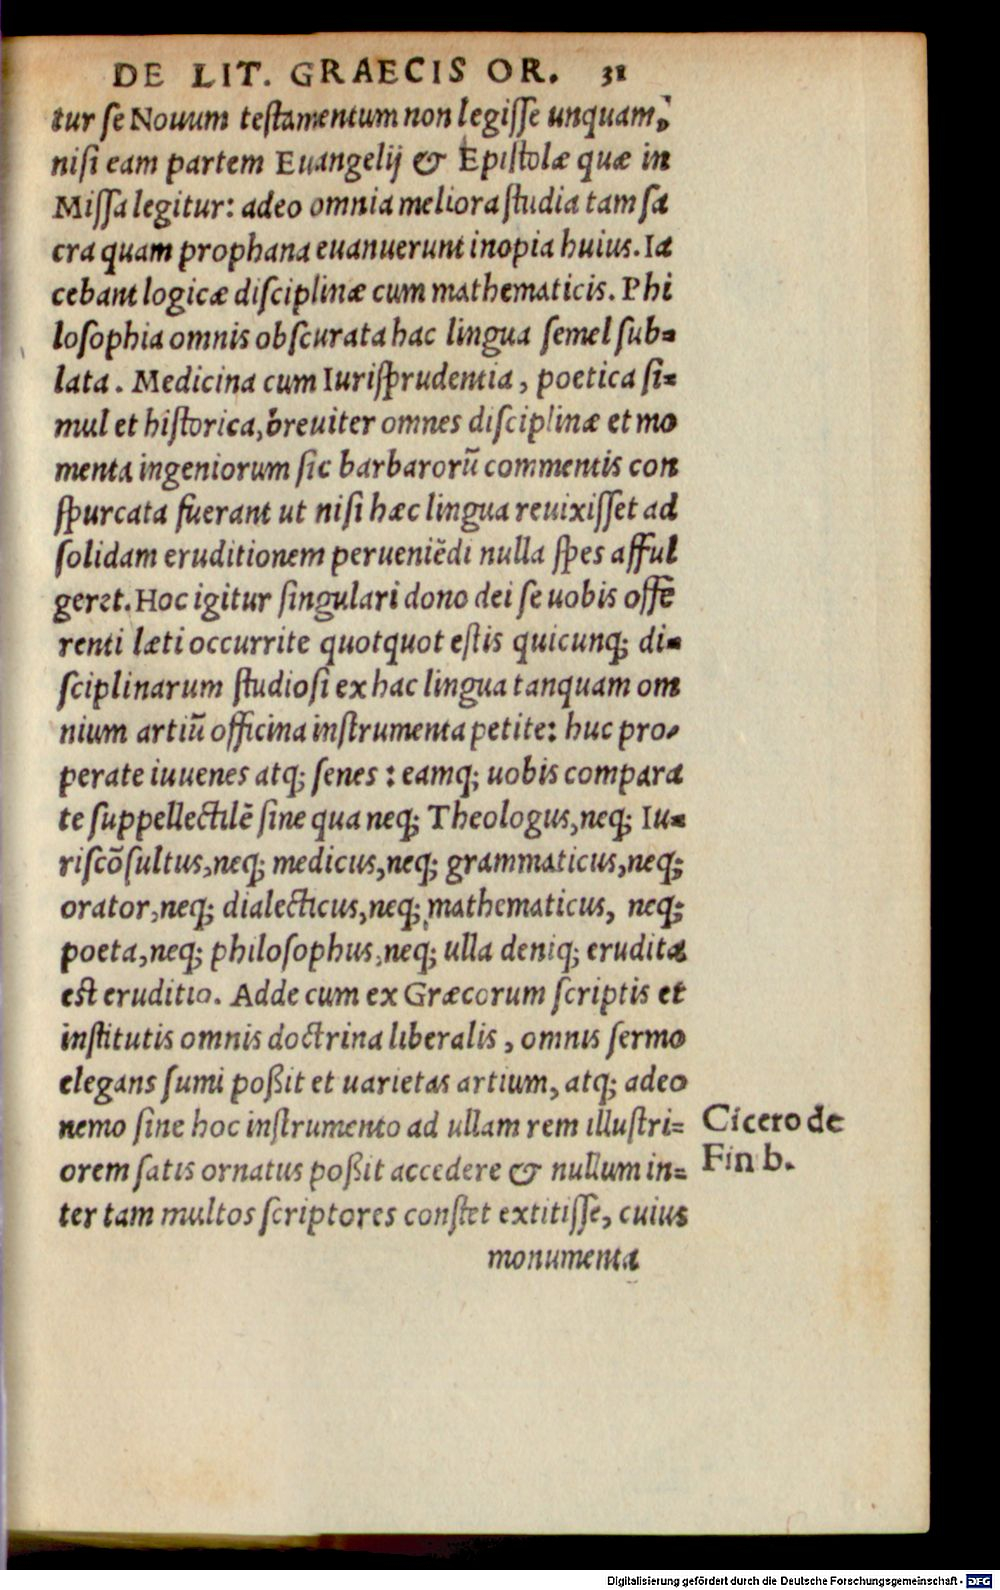 DE LIT. GRAECIS OR. 31
tur ſe Nouum teſtamentum non legiſſe unquam,
niſi eam partem Euangelij & Epiſtolæ quæ in
Miſſa legitur: adeo omnia meliora ſtudia tam ſa
cra quam prophana euanuerunt inopia huius. Ia
cebant logicæ diſciplinæ cum mathematicis. Phi
loſophia omnis obſcurata hac lingua ſemel ſub=
lata. Medicina cum Iuriſprudentia, poetica ſi=
mul et hiſtorica, breuiter omnes diſciplinæ et mo
menta ingeniorum ſic barbarorũ commentis con
ſpurcata fuerant ut niſi hæc lingua reuixiſſet ad
ſolidam eruditionem perueniẽdi nulla ſpes afful
geret. Hoc igitur ſingulari dono dei ſe uobis offẽ
renti læti occurrite quotquot eſtis quicunq; di=
ſciplinarum ſtudioſi ex hac lingua tanquam om
nium artiũ officina inſtrumenta petite: huc pro=
perate iuuenes atq; ſenes: eamq; uobis compara
te ſuppellectilẽ ſine qua neq; Theologus, neq; Iu=
riſcõſultus, neq; medicus, neq; grammaticus, neq;
orator, neq; dialecticus, neq; mathematicus, neq;
poeta, neq; philoſophus, neq; ulla deniq; erudita
est eruditio. Adde cum ex Græcorum ſcriptis et
inſtitutis omnis doctrina liberalis, omnis ſermo
elegans ſumi poßit et uarietas artium, atq; adeo
nemo ſine hoc inſtrumento ad ullam rem illuſtri=
orem ſatis ornatus poßit accedere & nullum in=
ter tam multos ſcriptores conſtet extitiſſe, cuius
monumenta
Cicero de
Fin b.
Digitalisierung gefördert durch die Deutsche Forschungsgemeinschaft - DFG